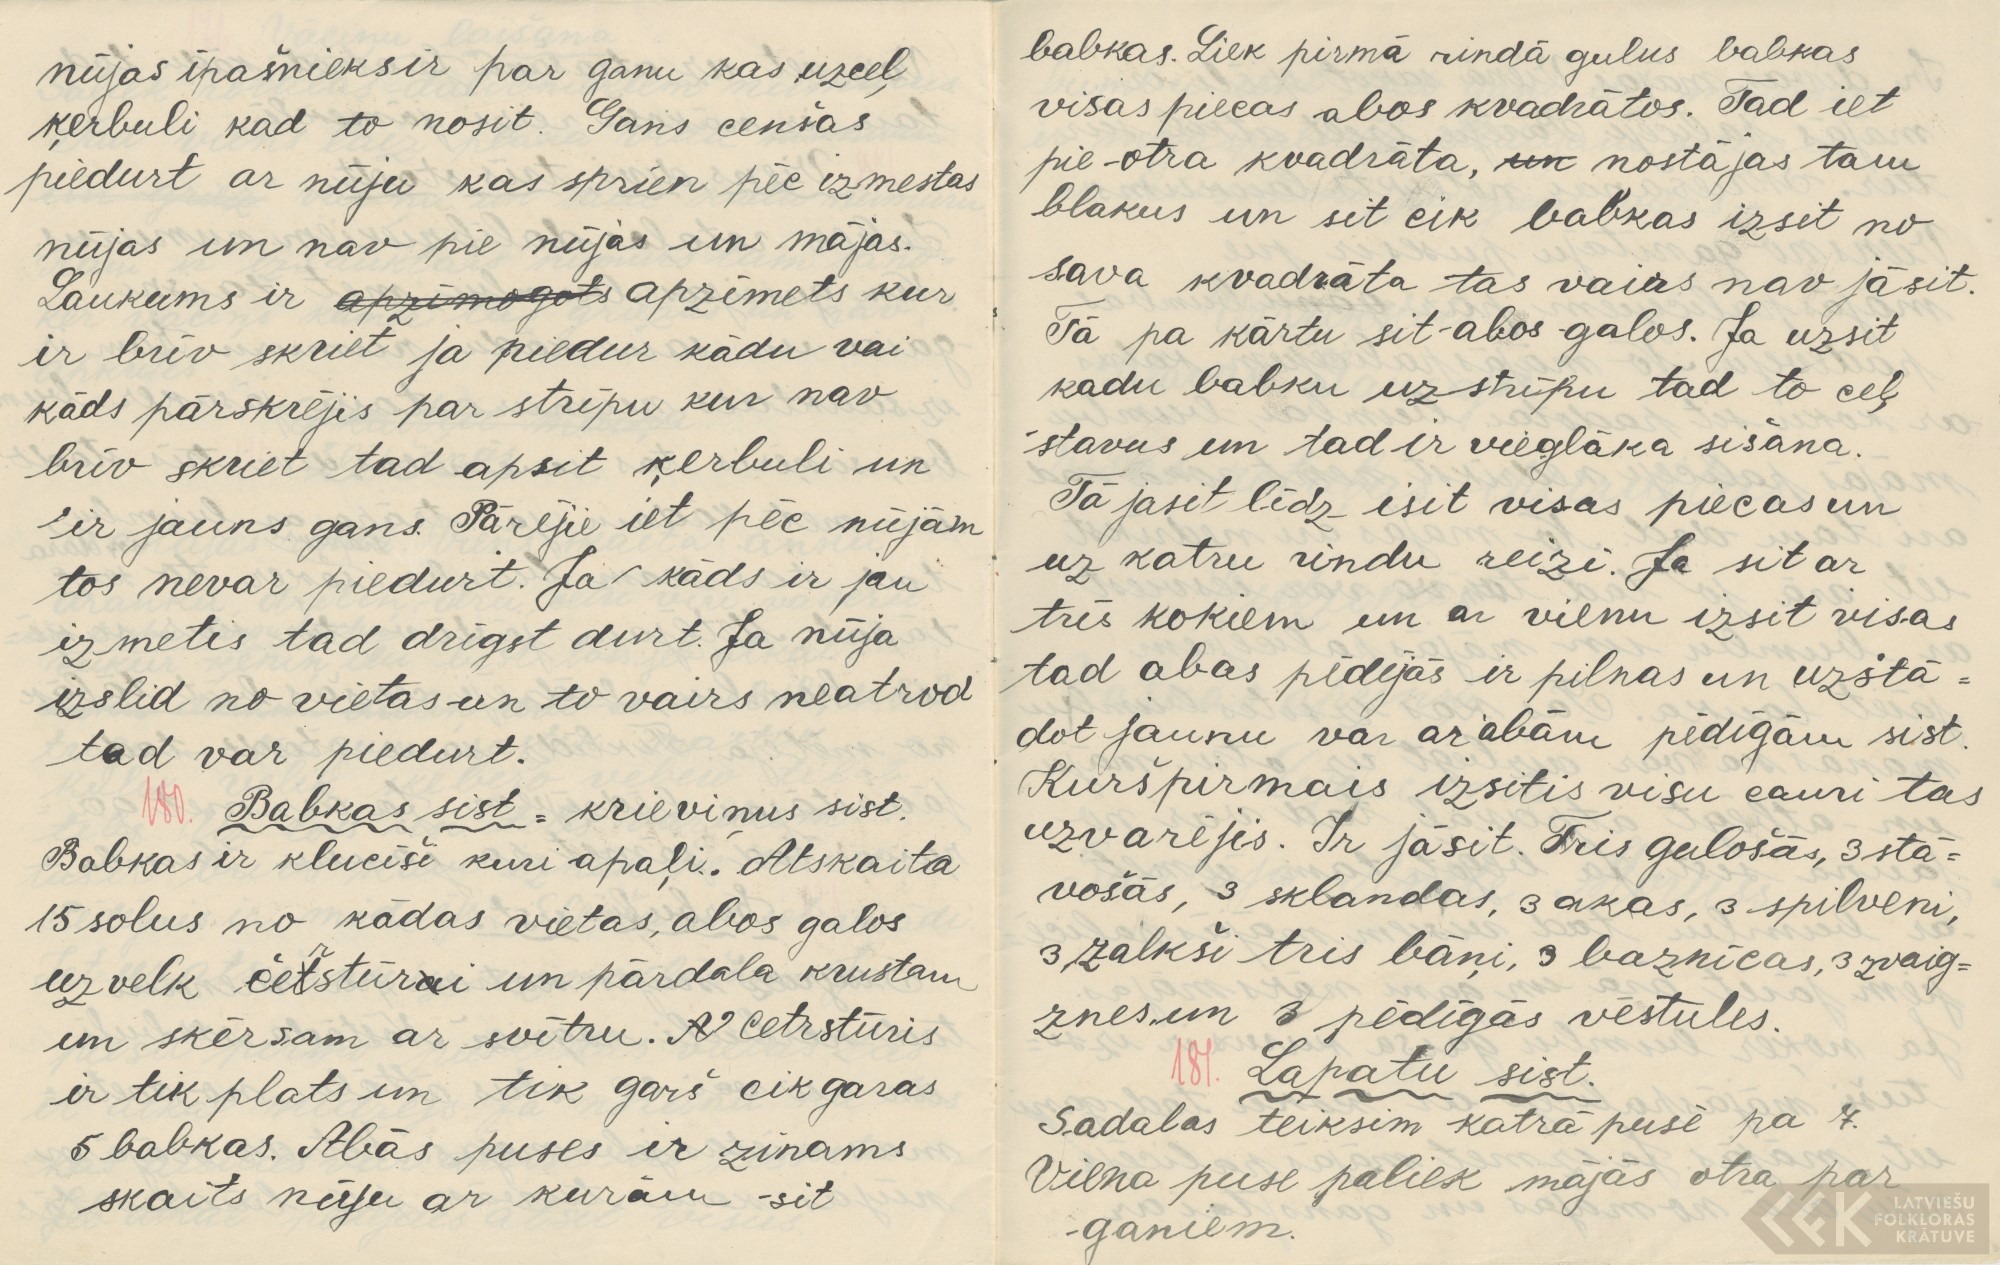 nūjas īpašnieks ir par ganu kas uzceļ
ķerbuli kad to nosit. Gans cenšas
piedurt ar nūju kas sprien pēc izmestas
nūjas un nav pie nūjas un mājas.
Laukums ir apzīmogots apzīmets kur
ir brīv skriet ja piedur kādu vai
kāds pārskrējis par strīpu kur nav
brīv skriet tad apsit ķerbuli un
ir jauns gans. Pārējie iet pēc nūjām
tos nevar piedurt. Ja kāds ir jau
izmetis tad drīgst durt. Ja nūja
izslid no vietas un to vairs neatrod
tad var piedurt.
180. Babkas sist = krievinus sist.
Babkas ir klucīši kuri apaļi. Atskaita
15 soļus no kādas vietas, abos galos
uzvelk četrstūri un pārdala krustam
un skērsam ar svītru. Cetrstūris
ir tik plats un tik garš cik garas
5 babkas. Abās puses ir zinams
skaits nūju ar kurām sit
babkas. Liek pirmā rindā gulus babkas
visas piecas abos kvadrātos. Tad iet
pie otra kvadrāta, un nostājas tam
blakus un sit cik babkas izsit no
sava kvadrāta tas vairs nav jāsit.
Tā pa kārtu sit abos galos. Ja uzsit
kadu babku uz strīpu tad to ceļ
stavus un tad ir vieglāka sišana.
Tā jasit līdz isit visas piecas un
uz katru rindu reizi. Ja sit ar
trīs kokiem un ar vienu izsit visas
tad abas pēdējās ir pilnas un uzstā=
dot jaunu var ar abām pēdīgām sist.
Kurš pirmais izsitis visu cauri tas
uzvarējis. Ir jāsit. Tris gulošās, 3 stā=
vošās, 3 sklandas, 3 akas, 3 spilveni,
3 zalkši tris bāņi, 3 baznīcas, 3 zvaig=
znes un 3 pēdīgās vēstules.
181. Lapatu sist.
Sadalas teiksim katrā pusē pa 7.
Viena puse paliek mājās otra par
ganiem.
LATVIEŠU
FOLKLORAS
KRĀTUVE